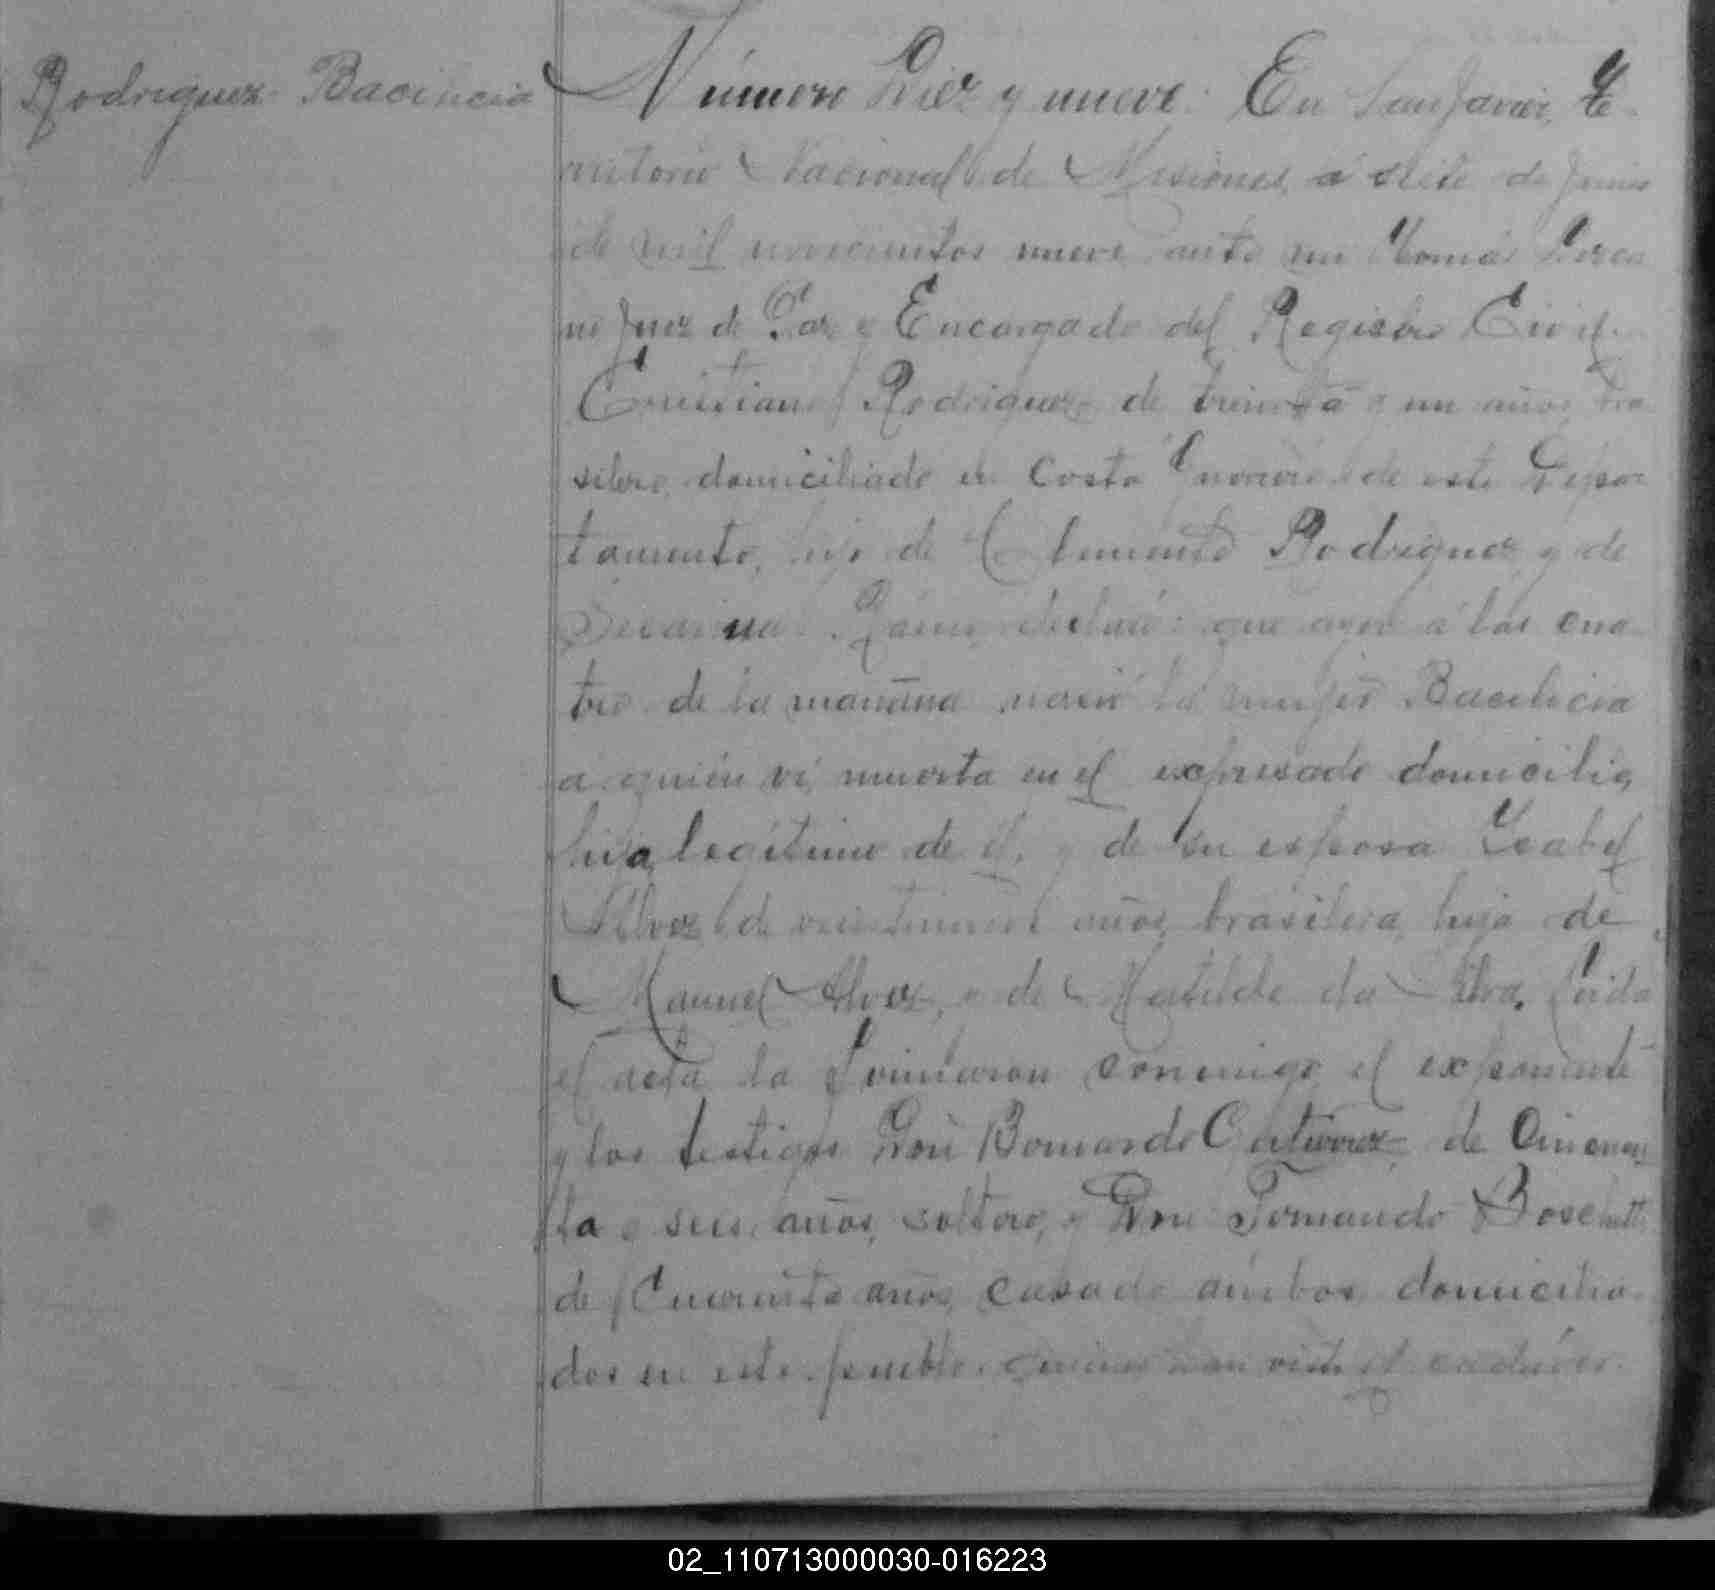 Rodriguez Bacilicia
Número Diez y nueve: En San Javier, Te-
rritorio Nacional de Misiones, á siete de Junio
de mil novecientos nueve ante mi Tomás
Juez de Paz y Encargado del Registro Civil
Cristiano Rodriguez de treinta y un años, bra-
silero, domiciliado en Costa de este Depar-
tamento, hijo de Clemente Rodriguez y de
declaró: que ayer á las cua-
tro de la mañana nació la mujer Bacilicia
á quién ví muerta en el expresado domicilio,
hija legítima de él, y de su esposa Isabel
Alvez de años, brasilera, hija de
Manuel Alvez, y de Matilde da Silva. Leida
el acta la firmaron conmigo el exponente
y los testigos Don Bernardo Gutierrez de Cincuen-
ta y seis años, soltero, y Don Fernando
de Cuarenta años, casado ambos domicilia-
dos en este pueblo, quienes han visto el cadáver.
02_110713000030-016223